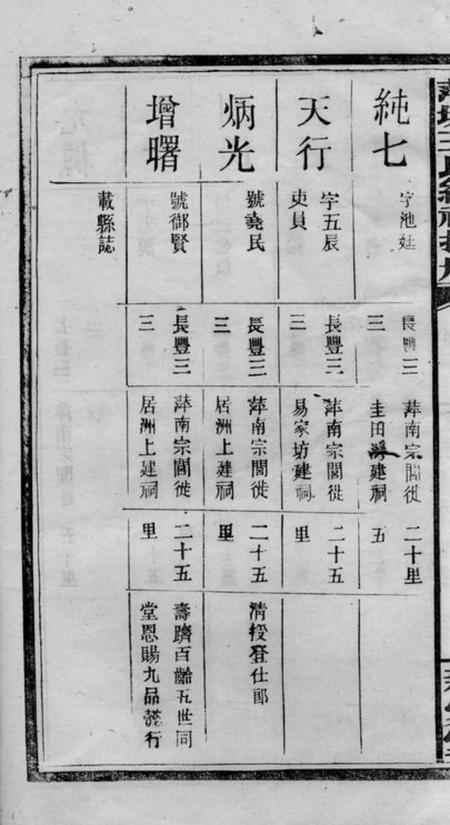 純七
字池廷
長豐三
三
萍南宗閣徙
圭田 建祠
二十里
五
天行
字五辰
吏員
長豐三
三
萍南宗閣徙
易家坊建祠
二十五
里
炳光
號堯民
長豐三
三
萍南宗閣徙
居洲上建祠
二十五
里
清授登仕郎
增曙
號御賢
載縣誌
長豐三
三
萍南宗閣徙
居洲上建祠
二十五
里
壽躋百齡五世同
堂恩賜九品懿行